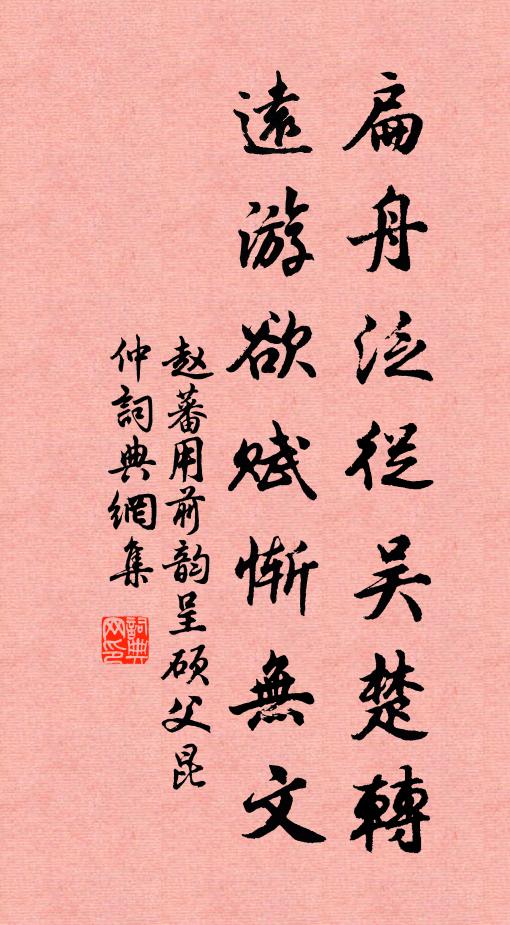 扁舟泛從吴楚轉
遠游欲賦慚無文
赵蕃用前韵呈硕父昆
仲詞典網集
詞典
网印